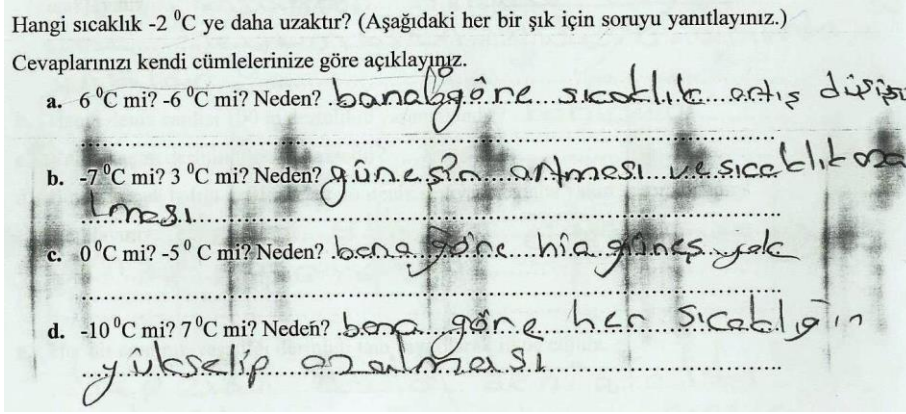 Hangi sıcaklık -2 ⁰C ye daha uzaktır? (Aşağıdaki her bir şık için soruyu yanıtlayınız.)
Cevaplarınızı kendi cümlelerinize göre açıklayınız.
a. 6 ⁰C mi? -6 ⁰C mi? Neden? bana göre sıcaklık artış düşüşü
b. -7 ⁰C mi? 3 ⁰C mi? Neden? güneşin artması ve sıcaklık aza
lması
c. 0 ⁰C mi? -5⁰ C mi? Neden? bana göre hiç güneş yok
d. -10 ⁰C mi? 7 ⁰C mi? Neden? bana göre her sıcaklığın
yükselip azalması